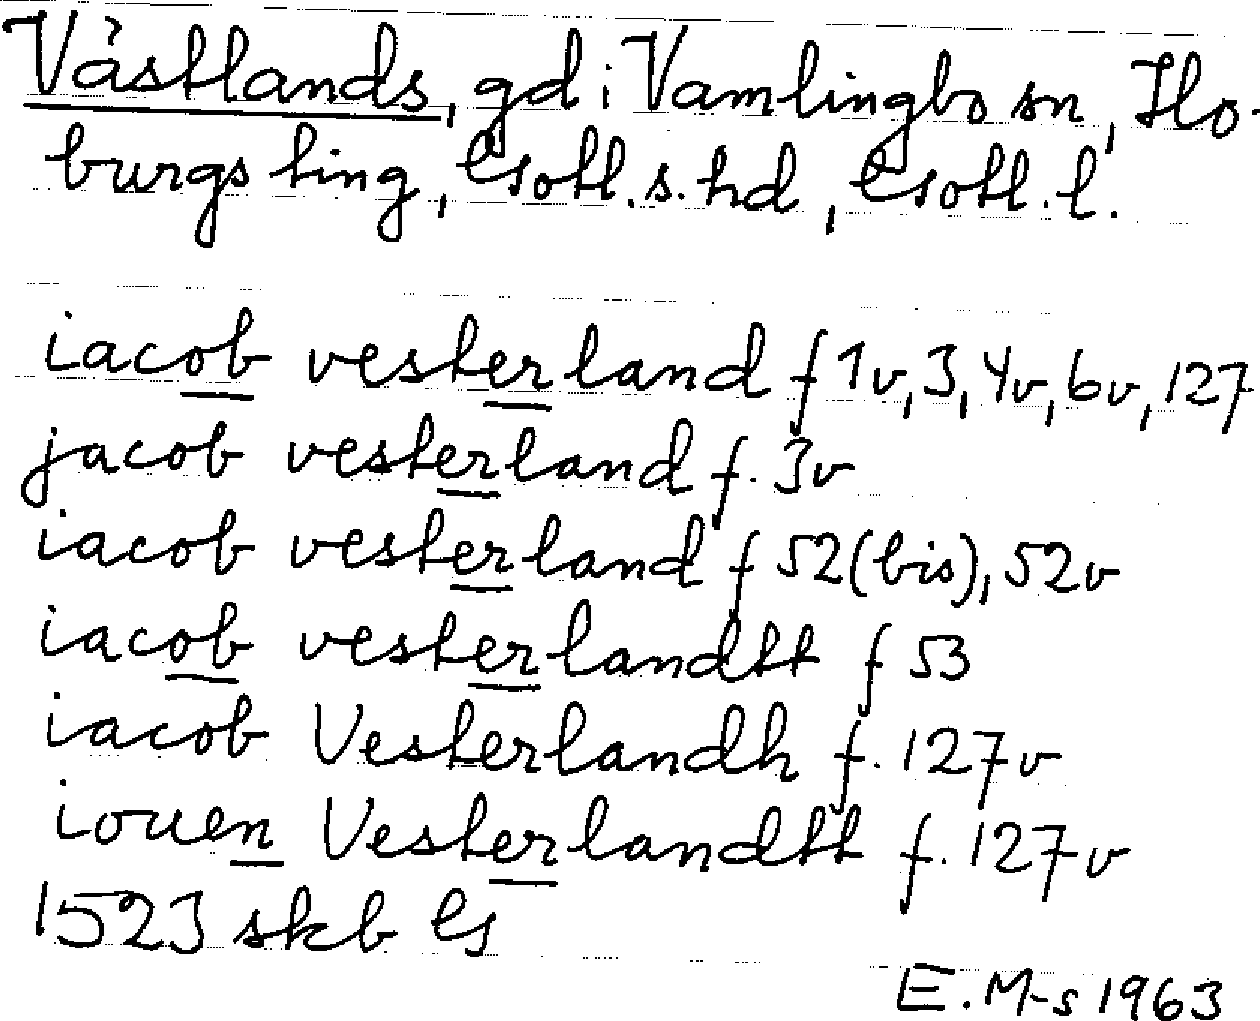 Västlands, gd i Vamlingbo sn, Ho-
burgs ting, Gotl. s. hd, Gotl. l.
iacob vesterland f 1v, 3, 4v, 6v, 127
jacob vesterland f. 3v
iacob vesterland f 52 (bis), 52v
iacob vesterlandtt f 53
iacob Vesterlandh f. 127v
iouen Vesterlandtt f. 127v
1523 skb G
E. M-s 1963